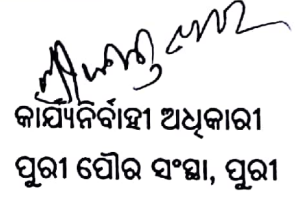 କାର୍ଯ୍ୟନିର୍ବାହୀ ଅଧିକାରୀ
ପୁରୀ ପୌର ସଂସ୍ଥା, ପୁରୀ